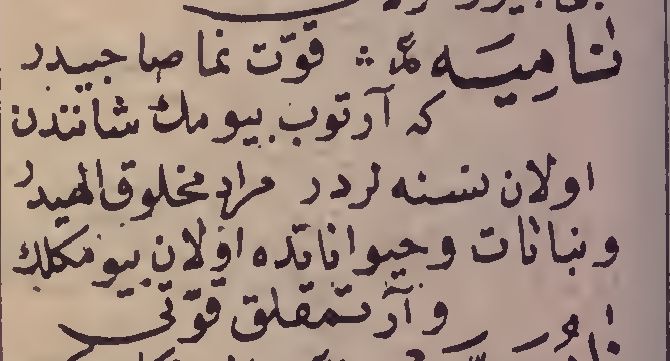 نامیه قوّت نما صاحبیدر
که آرتوب بیومك شانندن
اولان نسنه لردر مراد مخلوق الهیدر
و نباتات و حیواناتده اولان بیومکلك
و آرتمقلق قوّتی